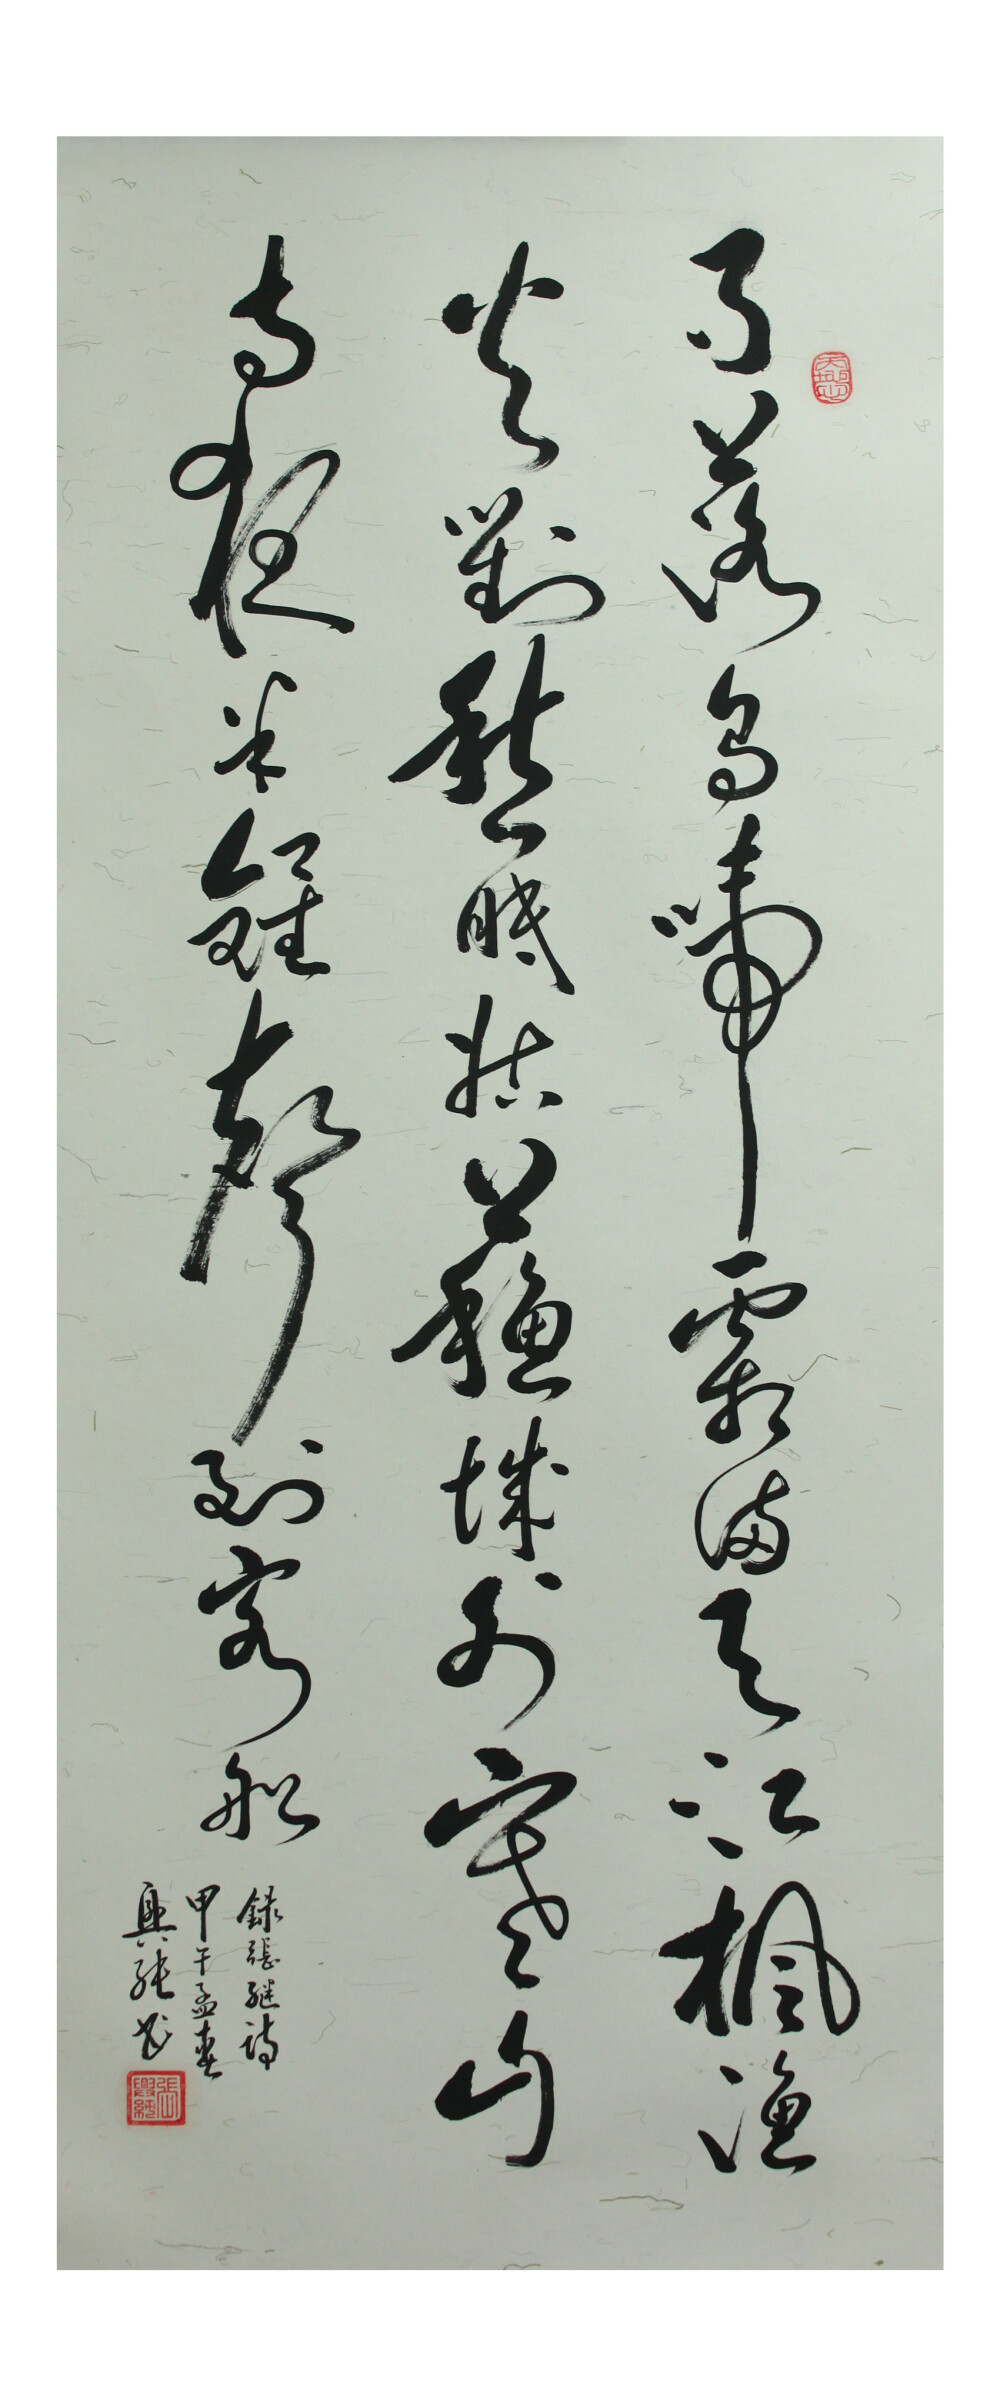 月落烏啼霜满天江楓漁
火對愁眠姑蘇城外寒山
寺夜半鐘聲到客船
録張继詩
甲午孟春